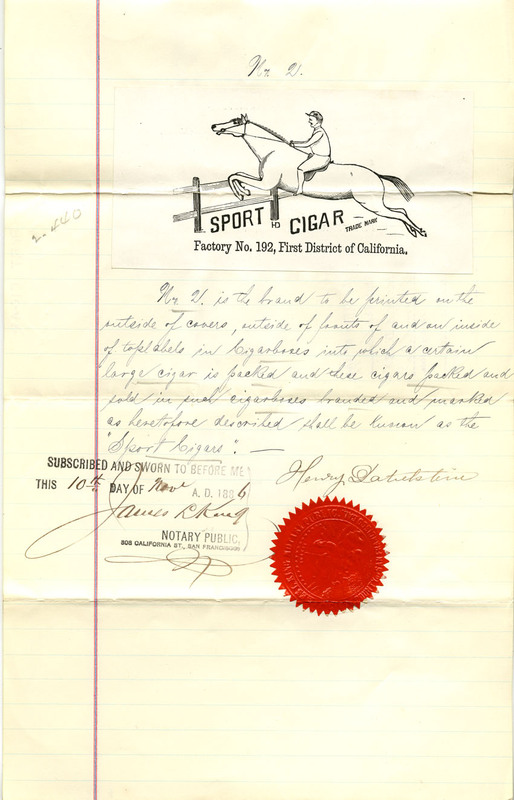 Nr 2.
SPORT CIGAR TRADE MARK
Factory No. 192, First District of California.
2440
Nr 2. is the brand to be printed on the
outside of covers, outside of fronts of and on inside
of toplabels in Cigarboxes into which a certain
large cigar is packed and these cigars packed and
sold in such cigarboxes branded and marked
as heretofore described shall be known as the
"Sport Cigars". —
Henry
SUBSCRIBED AND SWORN TO BEFORE ME
THIS 10th DAY OF Nov A. D. 1886
James L. King
NOTARY PUBLIC,
808 CALIFORNIA ST., SAN FRANCISCO